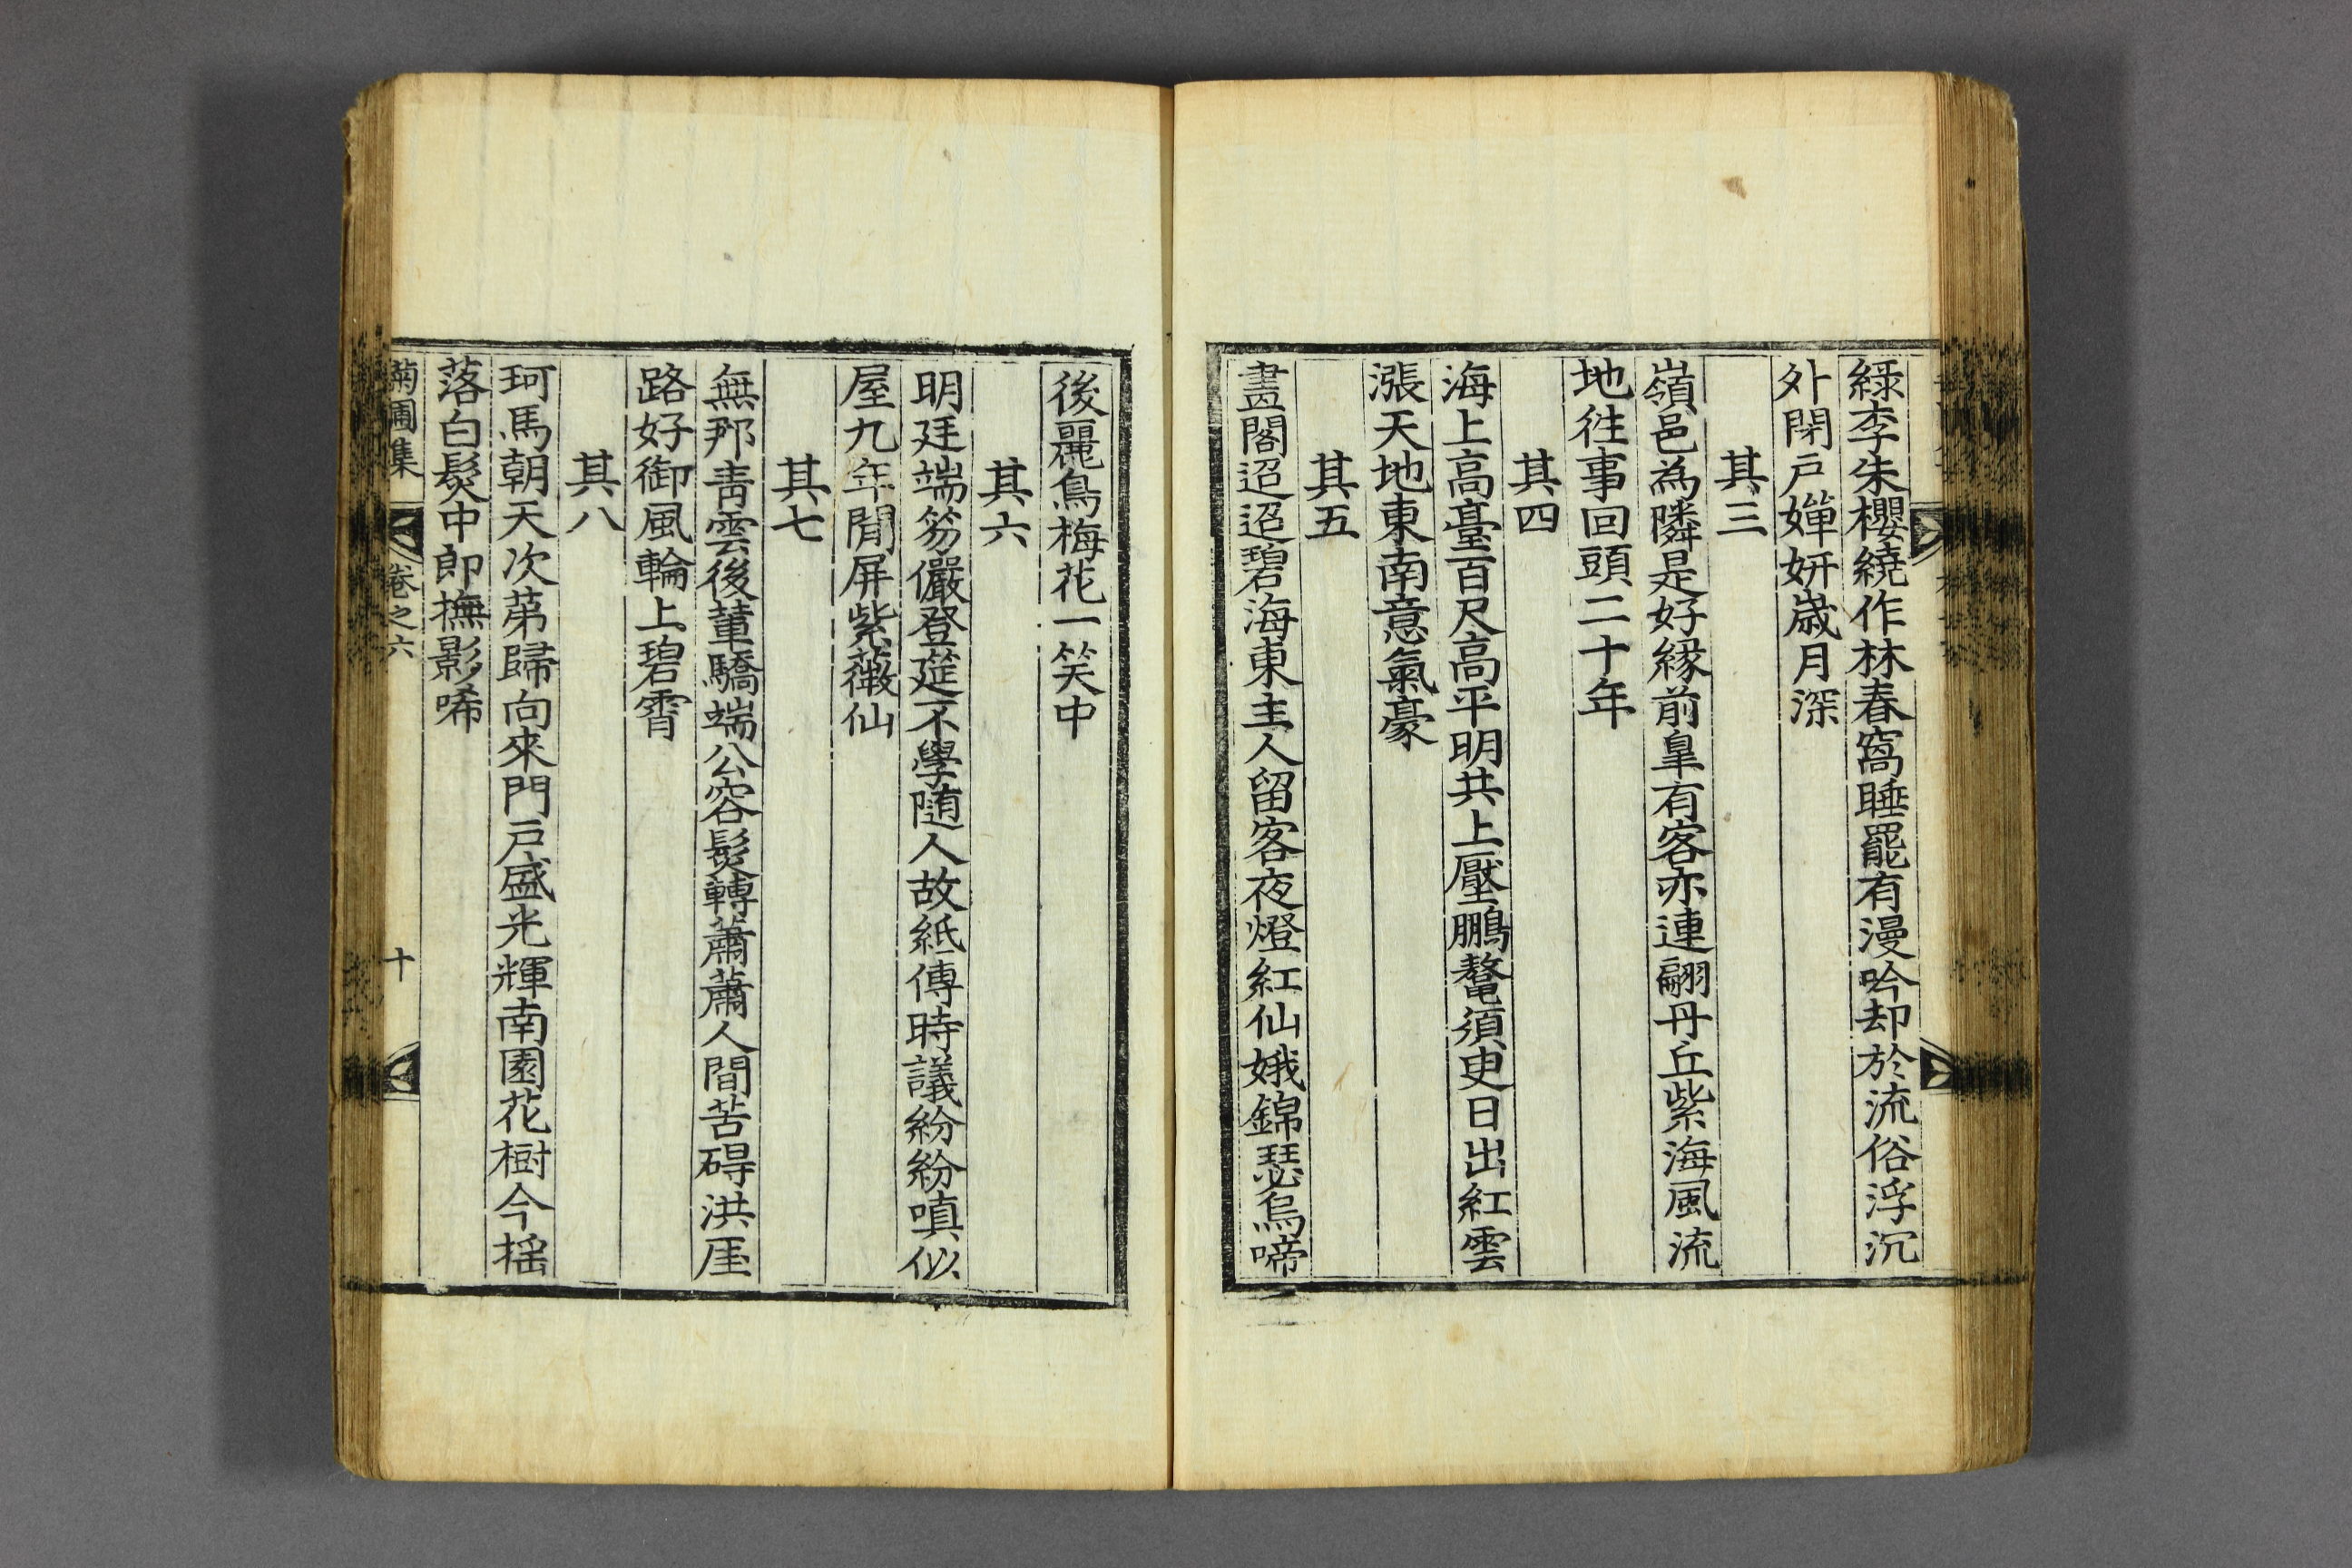 綠李朱櫻繞作林春窩睡罷有漫吟却於流俗浮沉
外閉戶嬋妍歲月深
其三
嶺邑為隣是好緣前臯有客亦連翩丹丘紫海風流
地徃事回頭二十年
其四
海上高臺百尺高平明共上壓鵬鼇須臾日出紅雲
漲天地東南意氣豪
其五
畫閣迢迢碧海東主人留客夜燈紅仙娥錦瑟烏啼
後麗鳥梅花一笑中
其六
明廷端笏儼登莚不學随人故紙傳時議紛紛嗔似
屋九年閒屏紫薇仙
其七
無那靑雲後輩驕端公容髮轉蕭蕭人間苦碍洪厓
路好御風輪上碧霄
其八
珂馬朝天次苐歸向來門戶盛光輝南園花樹今揺
落白髮中郎撫影唏
菊圃集 卷之六 十